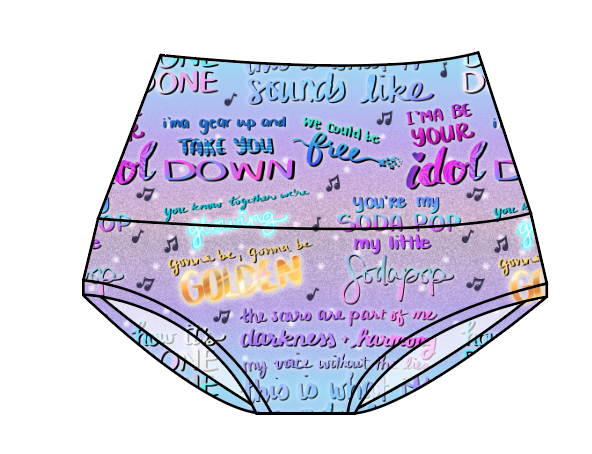 ONE
DONE
sounds like
i'ma gear up and
TAKE YOU
DOWN
we could be
free
I'MA BE
YOUR
idol
idol
D
you know together we're
glowing
you're my
SODA POP
my little
Sodapop
POP
you k
gonna be, gonna be
GOLDEN
the scars are part of me
darkness + harmony
my voice without the lies
this is what
how it's
DONE